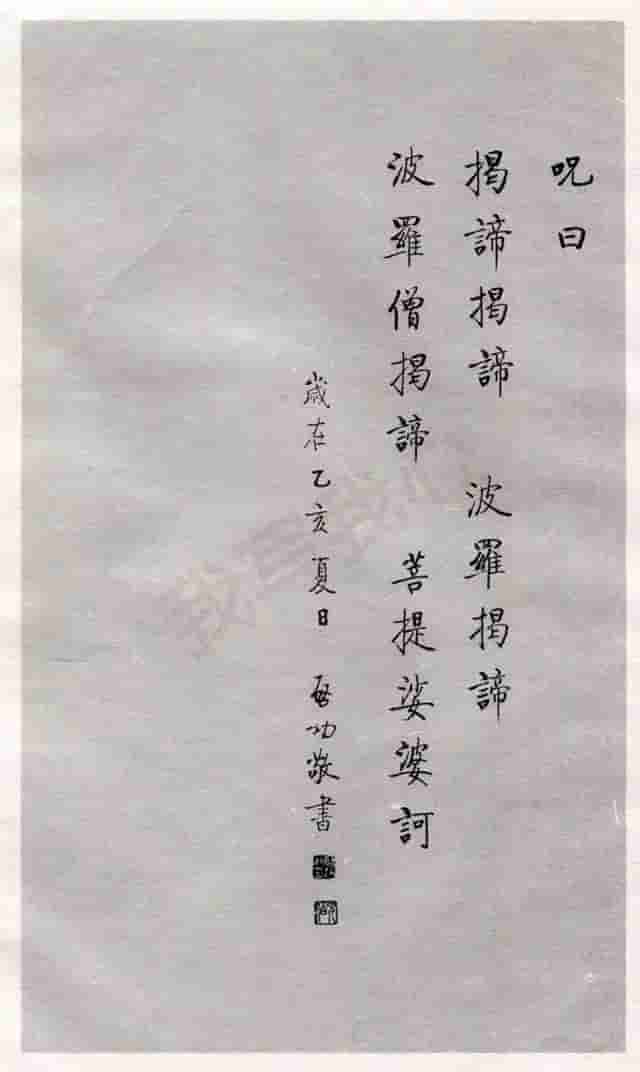 呪曰
揭諦揭諦 波羅揭諦
波羅僧揭諦 菩提娑婆訶
歲在乙亥夏日 啓功敬書